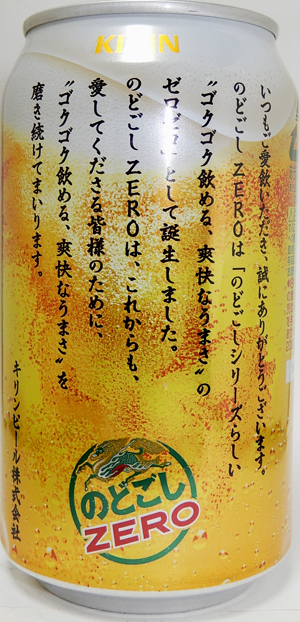 KIRIN
いつもご愛飲いただき、誠にありがとうございます。
のどごし ZEROは「のどごしシリーズらしい
“ゴクゴク飲める、爽快なうまさ”の
ゼロゼロ」として誕生しました。
のどごし ZEROは、これからも、
愛してくださる皆様のために、
“ゴクゴク飲める、爽快なうまさ”を
磨き続けてまいります。
キリンビール株式会社
のどごし
ZERO